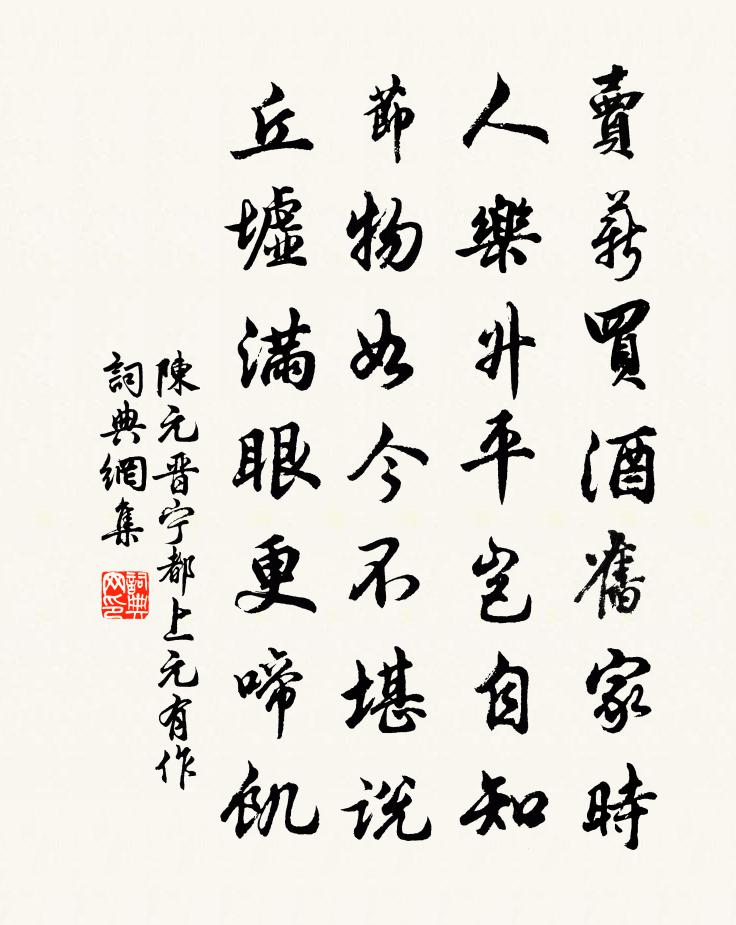 賣薪買酒舊家時
人樂升平豈自知
節物如今不堪説
丘墟滿眼更啼飢
陳元晋宁都上元有作
詞典網集
詞典网印